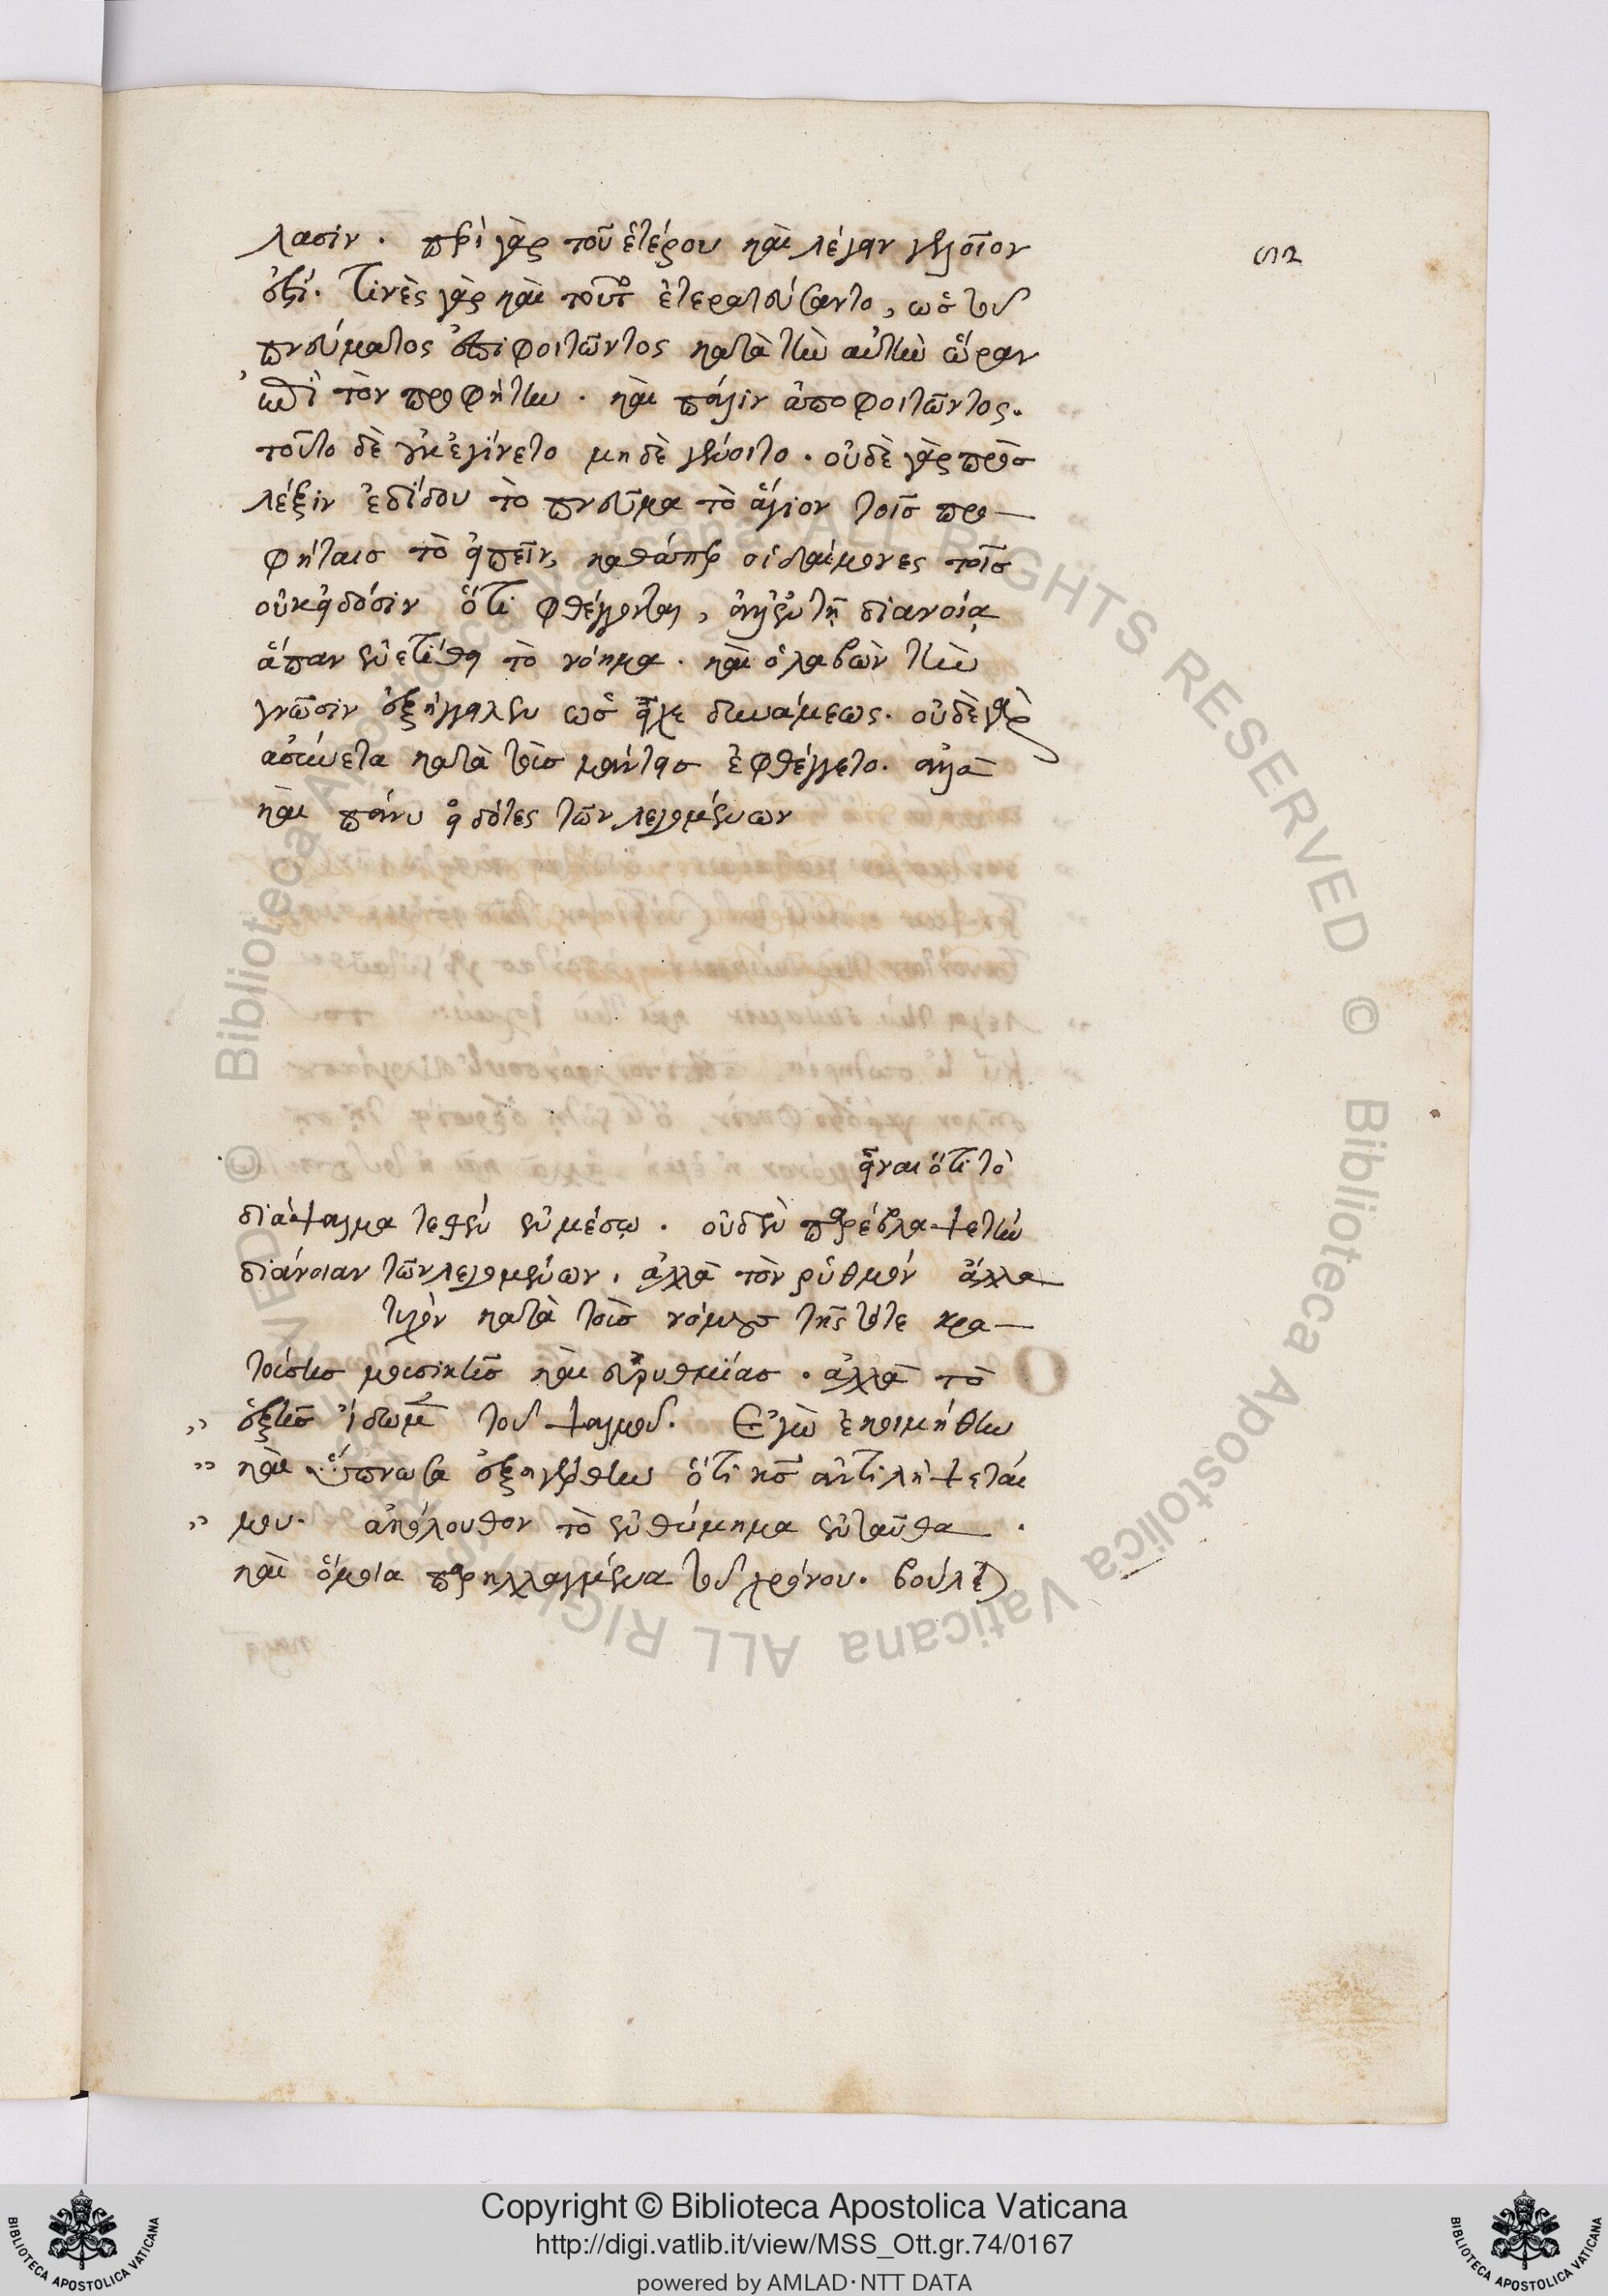 λασιν. περὶ γὰρ τοῦ ἑτέρου καὶ λέγειν γελοῖον
ςη
ἐστί. τινὲς γὰρ καὶ τοῦτο ἐτερατεύσαντο, ὡς τοῦ
πνεύματος ἐπιφοιτῶντος κατὰ τὴν αὐτὴν ὥραν
ἐπὶ τὸν προφήτην. καὶ πάλιν ἀποφοιτῶντος.
τοῦτο δὲ οὐκ ἐγίνετο μηδὲ γένοιτο. οὐδὲ γὰρ πρὸς
λέξιν ἐδίδου τὸ πνεῦμα τὸ ἅγιον τοῖς προ
φήταις τὸ εἰπεῖν, καθάπερ οἱ δαίμονες τοῖς
οὐκ εἰδόσιν ὅτι φθέγγονται, ἀλλ' ἐν τῇ διανοίᾳ
ἅπαν ἐνετίθει τὸ νόημα. καὶ ὁ λαβὼν τὴν
γνῶσιν ἐξήγγειλεν ὡς εἶχε δυνάμεως. οὐδὲ γὰρ
ἀσύνετα κατὰ τοὺς μάντεις ἐφθέγγετο. ἀλλὰ
καὶ πάνυ εἰδότες τῶν λεγομένων
εἶναι ὅτι τὸ
διάψαλμα τεθὲν ἐν μέσῳ. οὐδὲν παρέβλαψε τὴν
διάνοιαν τῶν λεγομένων. ἀλλὰ τὸν ῥυθμὸν ἀλλα
τυχὸν κατὰ τοὺς νόμους τῆς τότε κρα
τούσης μουσικῆς καὶ εὐρυθμίας. ἀλλὰ τὸ
ἑξῆς ἴδωμεν τοῦ ψαλμοῦ. Ἐγὼ ἐκοιμήθην
καὶ ὕπνωσα ἐξηγέρθην ὅτι κς ἀντιλήψεταί
μου. ἀκόλουθον τὸ ἐνθύμημα ἐνταῦθα.
καὶ ὅμοια παρηλλαγμένα τοῦ χρόνου. βούλεται
Copyright © Biblioteca Apostolica Vaticana
http://digi.vatlib.it/view/MSS_Ott.gr.74/0167
powered by AMLAD·NTT DATA
BIBLIOTECA APOSTOLICA VATICANA
BIBLIOTECA APOSTOLICA VATICANA
© Biblioteca Apostolica Vaticana ALL RIGHTS RESERVED © Biblioteca Apostolica Vaticana ALL RIGHTS RESERVED